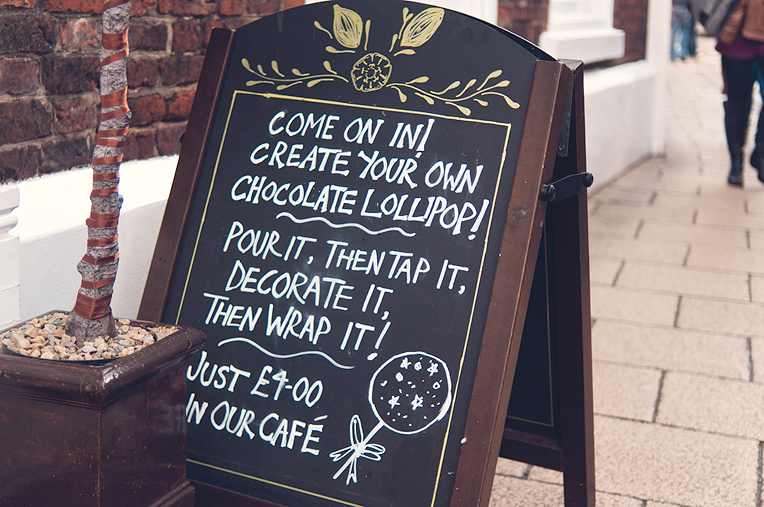 COME ON IN!
CREATE YOUR OWN
CHOCOLATE LOLLIPOP!
POUR IT, THEN TAP IT,
DECORATE IT,
THEN WRAP IT!
JUST £4-00
IN OUR CAFÉ